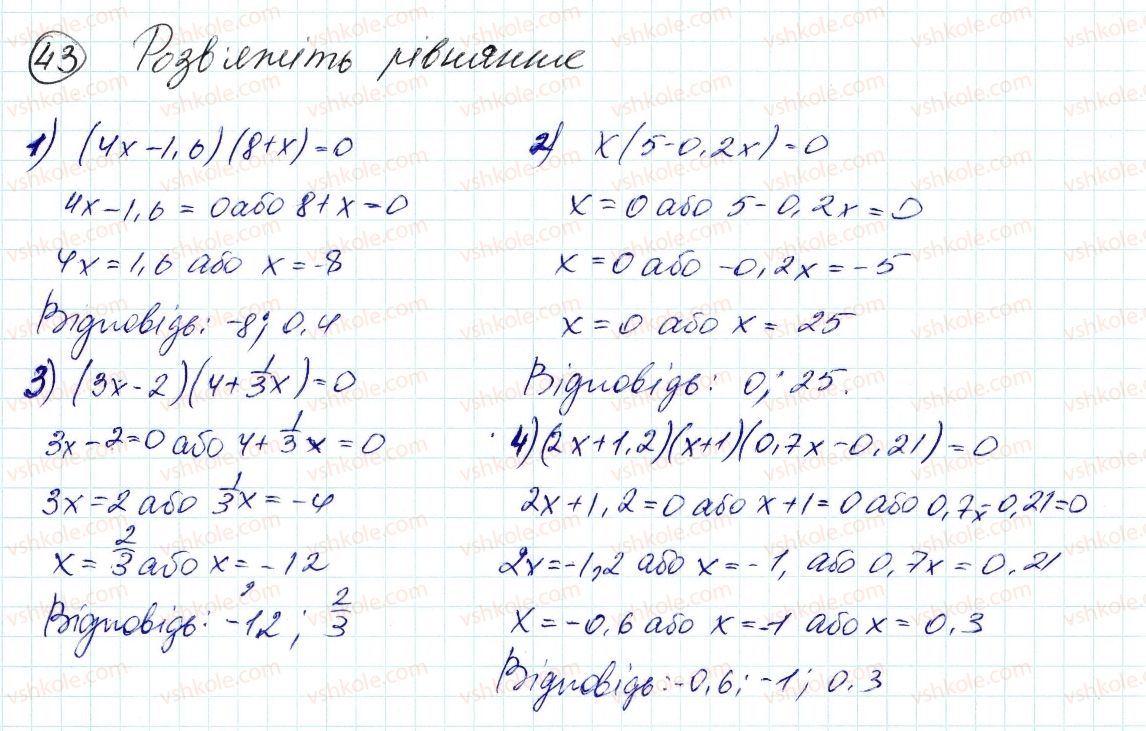 43 Розв'яжіть рівняння
1) (4x-1,6)(8+x)=0
4x-1,6=0 або 8+x=0
4x=1,6 або x=-8
Відповідь: -8; 0,4
2) x(5-0,2x)=0
x=0 або 5-0,2x=0
x=0 або -0,2x=-5
x=0 або x=25
Відповідь: 0; 25.
3) (3x-2)(4+1/3x)=0
3x-2=0 або 4+1/3x=0
3x=2 або 1/3x=-4
x=2/3 або x=-12
Відповідь: -12; 2/3
4) (2x+1,2)(x+1)(0,7x-0,21)=0
2x+1,2=0 або x+1=0 або 0,7x-0,21=0
2x=-1,2 або x=-1, або 0,7x=0,21
x=-0,6 або x=-1 або x=0,3
Відповідь: -0,6; -1; 0,3